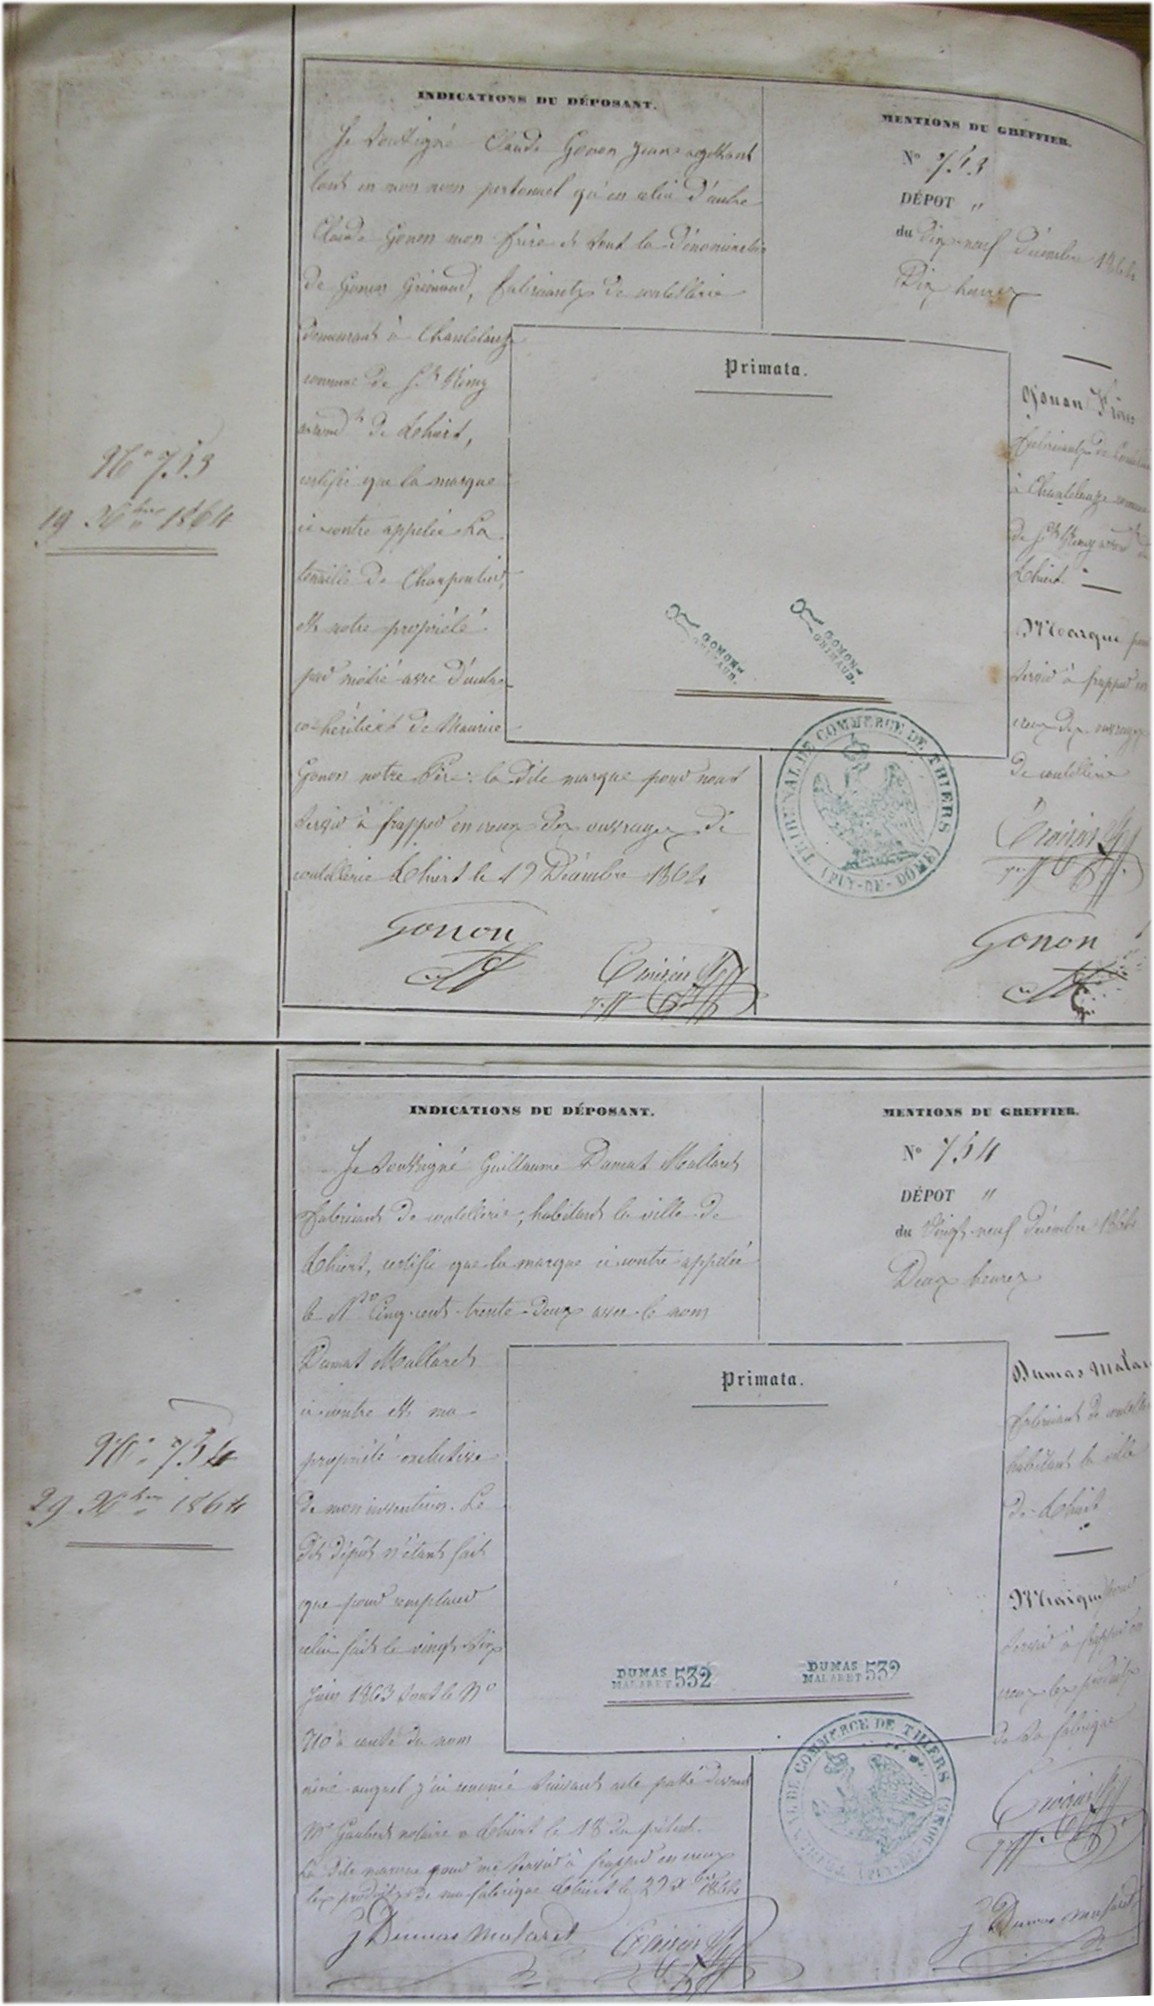 INDICATIONS DU DÉPOSANT.
Je soussigné Claude Gonon jeune agissant
tant en mon nom personnel qu'en celui d'autre
Claude Gonon mon frère et sous la dénomination
de Gonon Grimaud, fabricants de coutellerie
demeurant à Chantelauze
commune de St Remy
arrond.t de Thiers,
certifie que la marque
ci-contre appelée La
tenaille de Charpentier,
est notre propriété
par moitié avec d'autres
co-héritiers de Maurice
Gonon notre Père: la dite marque pour nous
servir à frapper en creux des ouvrages de
coutellerie Thiers le 19 Décembre 1864
Gonon
MENTIONS DU GREFFIER.
N° 753
DÉPOT "
du dix-neuf décembre 1864
Dix heures
Gonon Frères
fabricants de
à Chantelauze commune
de St Remy
Thiers.
Marque pour
servir à frapper en
creux des ouvrages
de coutellerie
Gonon
N° 753
19 Xbre 1864
Primata.
GONON-
GRIMAUD.
GONON-
GRIMAUD.
TRIBUNAL DE COMMERCE DE THIERS
(PUY-DE-DÔME)
INDICATIONS DU DÉPOSANT.
Je soussigné Guillaume Dumas Mallaret
fabricant de coutellerie, habitant la ville de
Thiers, certifie que la marque ci contre appelée
le N° Cinq-cent-trente-Deux avec le nom
Dumas Mallaret
ci contre est ma
propriété exclusive
de mon invention. Le
dit dépôt n'étant fait
que pour remplacer
celui fait le vingt-six
Juin 1863 sous le N°
710 à cause du nom
auquel j'ai renoncé suivant acte passé devant
Me notaire à Thiers le 18 du présent.
La dite marque pour me servir à frapper en creux
les produits de ma fabrique Thiers le 29 Xbre 1864
J Dumas Malaret
MENTIONS DU GREFFIER.
N° 754
DÉPOT "
du Vingt-neuf décembre 1864
Deux heures
Dumas Malaret
fabricant de
habitant la ville
de Thiers
Marque pour
servir à frapper en
creux les produits
de sa fabrique
J Dumas Malaret
N° 754
29 Xbre 1864
Primata.
DUMAS
MALARET 532
DUMAS
MALARET 532
TRIBUNAL DE COMMERCE DE THIERS
(PUY-DE-DÔME)